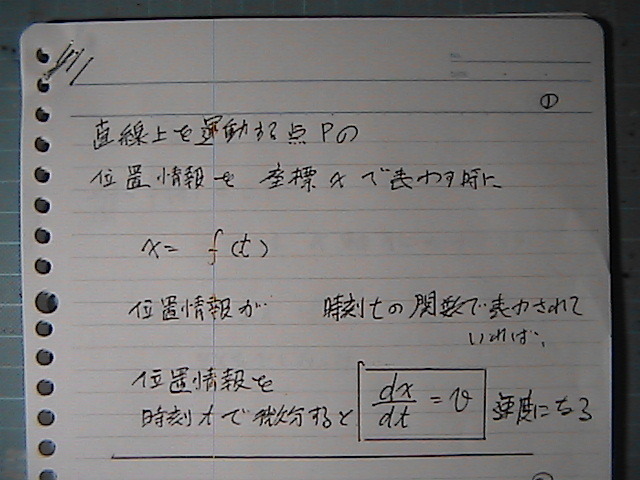 ①
直線上を運動する点Pの
位置情報を 座標xで表わす時に
x = f(t)
位置情報が 時刻tの関数で表わされて
いれば、
位置情報を
時刻tで微分すると dx/dt = v 速度になる